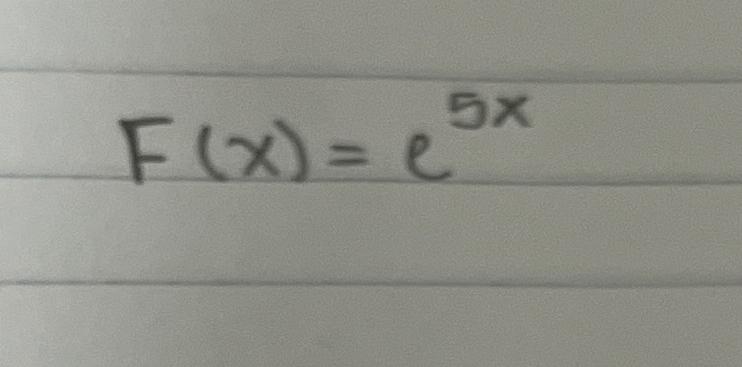 F(x) = e^{5x}